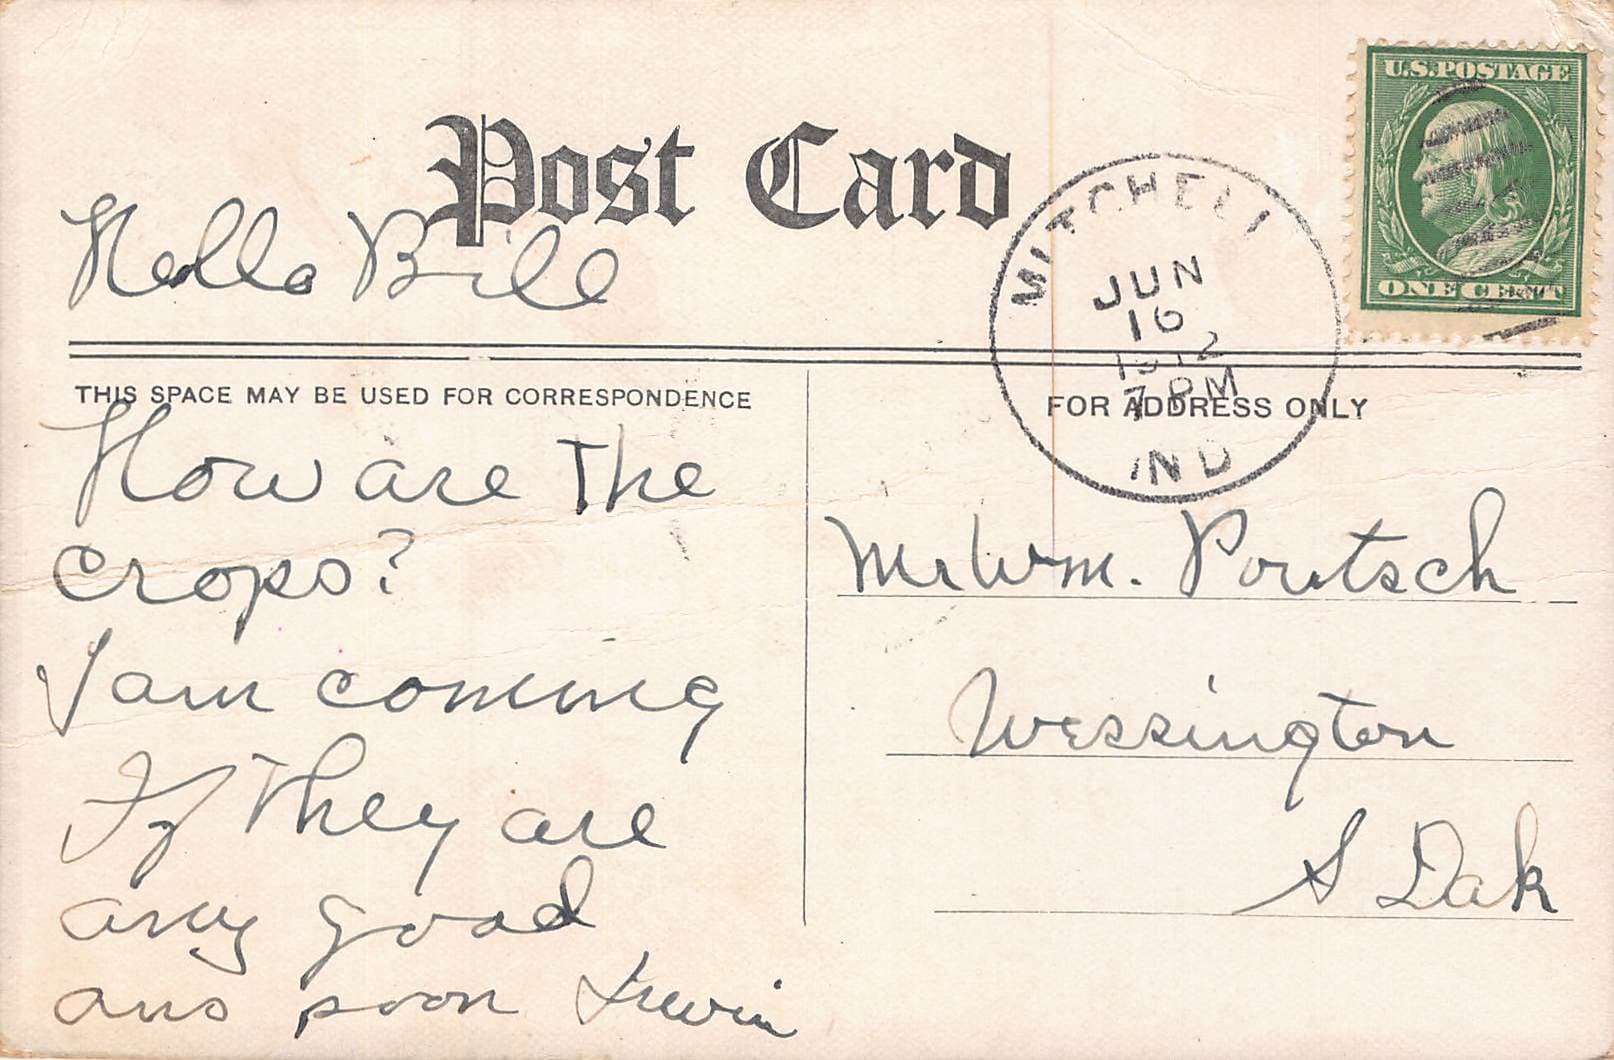 U.S. POSTAGE
ONE CENT
Post Card
MITCHELL
JUN
16
1912
7 PM
IND
Hello Bill
THIS SPACE MAY BE USED FOR CORRESPONDENCE
FOR ADDRESS ONLY
How are the
crops?
I am coming
If they are
any good
ans soon Irwin
Mr Wm. Poutsch
Wessington
S Dak